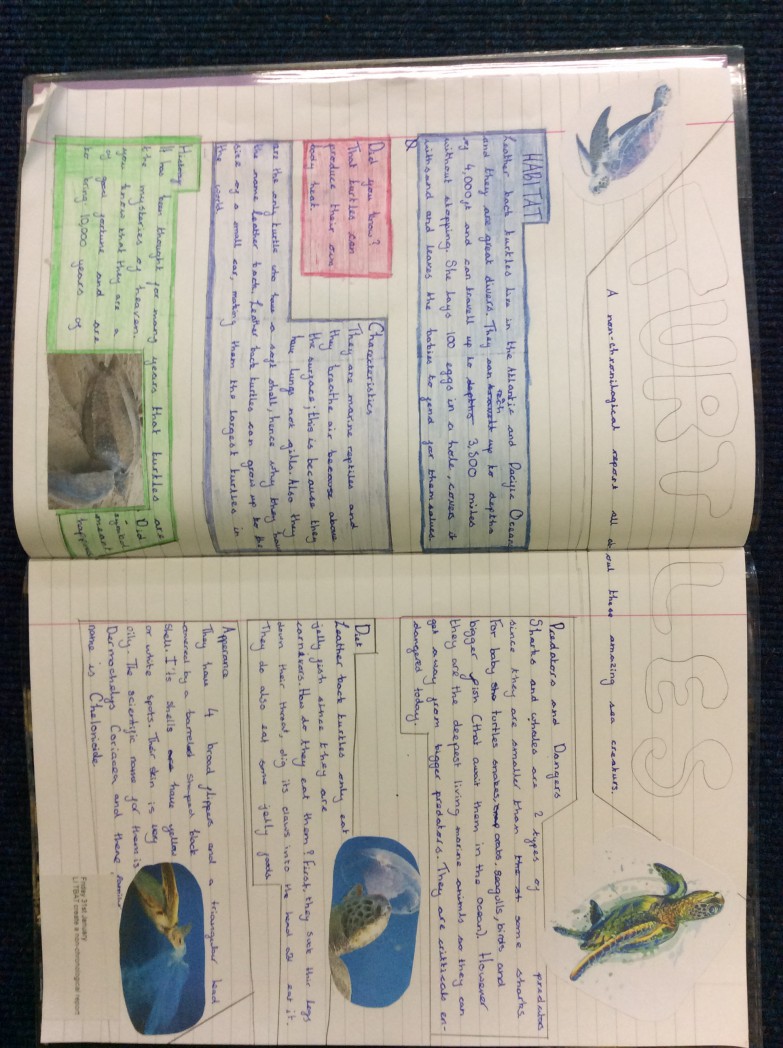 TURTLES
A non-chronilogical report all about these amazing sea creaturs.
HABITAT
Leather back turtles live in the Atlantic and Pacific Ocean
and they are great divers. They can travell reach up to depths
of 4,000ft and can travell up to depths 3,800 miles
without stopping. She lays 100 eggs in a hole, covers it
with sand and leaves the babies to fend for themselves
Did you know?
That turtles can
produce their own
body heat.
Characteristics
They are marine reptiles and
they breathe air because above
the surface; this is because they
have lungs not gills. Also they
are the only turtle who have a soft shell, hence why they have
the name leather back. Leather back turtles can grow up to the
size of a small car, making them the largest turtles in
the world
History
It has been thought for many years that turtles are
the mysteries of heaven. Did
you know that they are a symbol
of good fortune and are meant
to bring 10,000 years of happines
Predators and Dangers
Sharks and whales are 2 types of predators
since they are smaller than the some sharks
For baby turtles snakes, crabs, seagulls, birds and
bigger fish (that await them in the ocean). However
they are the deepest living marine animals so they can
get away from bigger predators. They are critticals en-
dangered today.
Diet
Leather back turtles only eat
jelly fish since they are
carnivors. How do they eat them? First, they suck their legs
down their throat, dig its claws into the head and eat it.
They do also eat some jelly foods
Apperance
They have 4 broad flippers and a triangular head
covered by a barreled shaped back
shell. I'ts shells are have yellow
or white spots. Ther skin is very
oily. The scientific name for them is
Dermochelys Coriacea and there familar
name is Chelonioide
Friday 31st January
LI TBAT create a non-chronological report